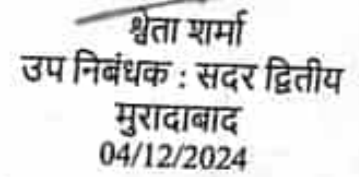 श्वेता शर्मा
उप निबंधक : सदर द्वितीय
मुरादाबाद
04/12/2024